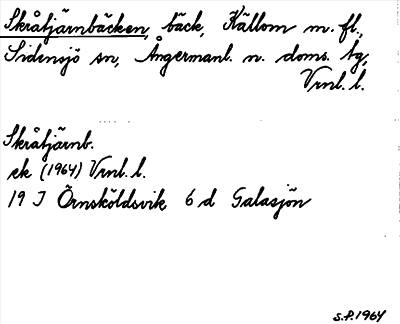 Skråtjärnbäcken, bäck, Källom m. fl.,
Sidensjö sn, Ångermanl. n. doms. tg,
Vrnl. l.
Skråtjärnb.
ek (1964) Vrnl. l.
19 I Örnsköldsvik 6 d Galasjön
S.P. 1964